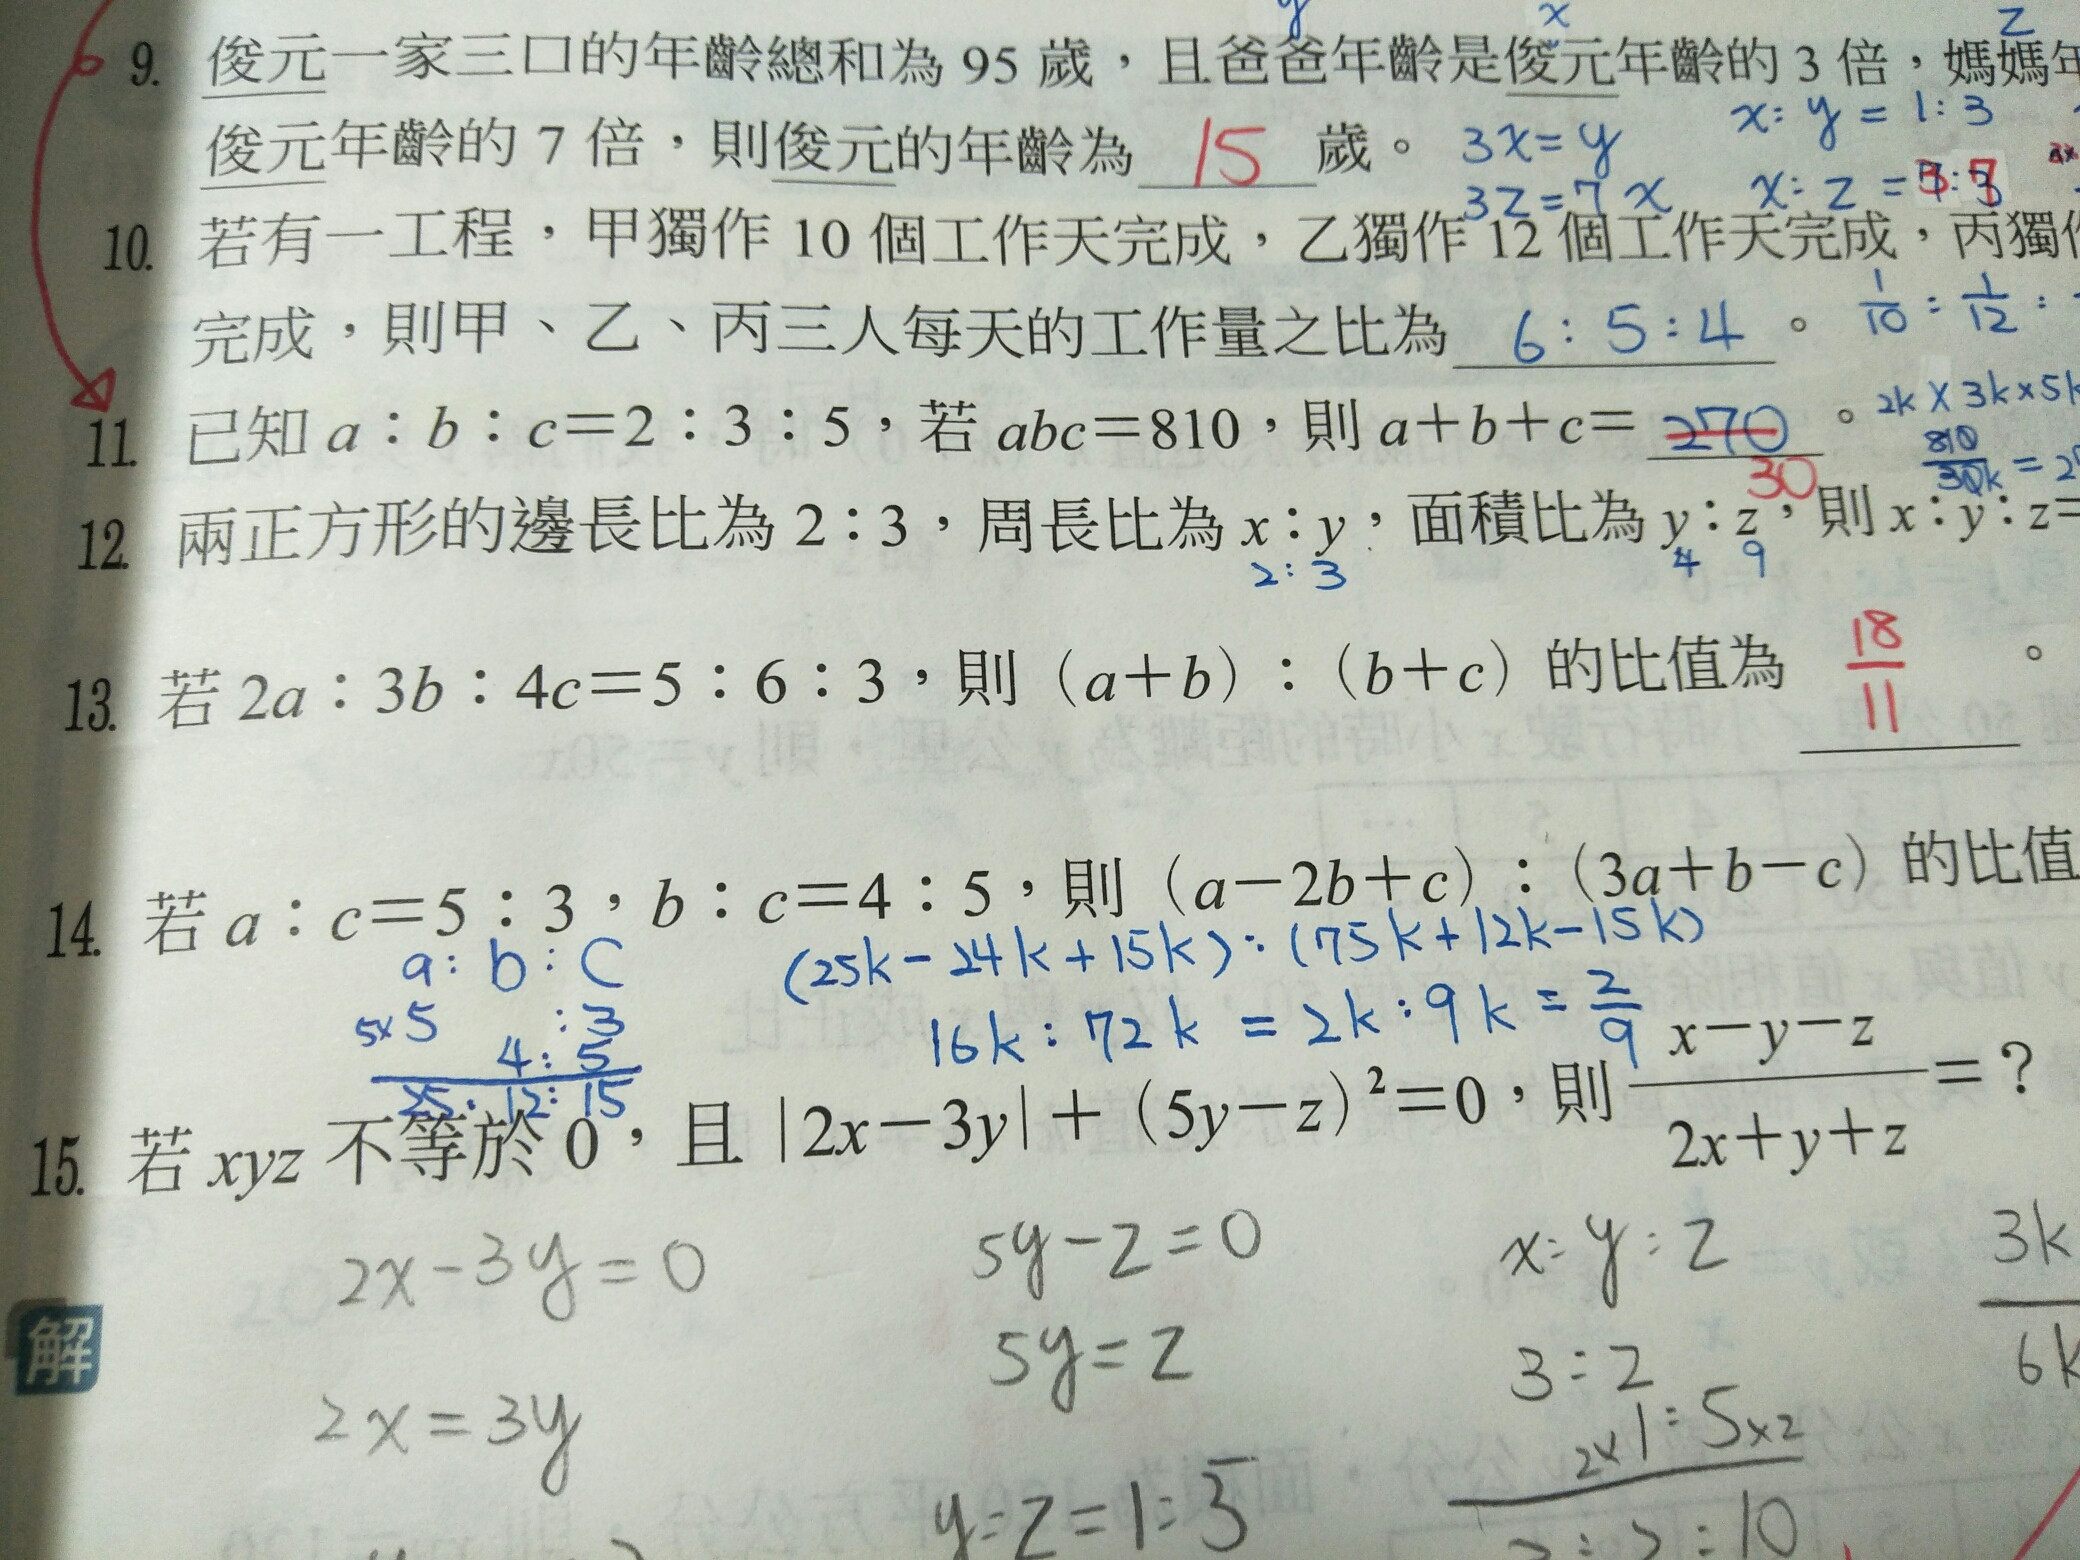 y x z
9. 俊元一家三口的年齡總和為 95 歲，且爸爸年齡是俊元年齡的 3 倍，媽媽年
x: y = 1:3
俊元年齡的 7 倍，則俊元的年齡為 15 歲。 3x=y
3z=7x x: z =
10. 若有一工程，甲獨作 10 個工作天完成，乙獨作 12 個工作天完成，丙獨作
完成，則甲、乙、丙三人每天的工作量之比為 6:5:4 。 1/10 : 1/12 :
11. 已知 a：b：c＝2：3：5，若 abc＝810，則 a＋b＋c＝ 270 。 2k X 3k x 5k
30 810/30k = 2
12. 兩正方形的邊長比為 2：3，周長比為 x：y，面積比為 y：z，則 x：y：z＝
2:3 4 9
13. 若 2a：3b：4c＝5：6：3，則（a＋b）：（b＋c）的比值為 18/11 。
14. 若 a：c＝5：3，b：c＝4：5，則（a－2b＋c）：（3a＋b－c）的比值
a:b:c (25k-24k+15k):(75k+12k-15k)
5x5 :3 16k:72k = 2k:9k = 2/9
4:5
25:12:15
15. 若 xyz 不等於 0，且 |2x－3y|＋（5y－z）²＝0，則 x－y－z/2x＋y＋z ＝？
2x-3y=0 5y-z=0 x:y:z 3k
解 5y=z 3:2 6k
2x=3y 2x1:5x2
y:z=1:5 :10